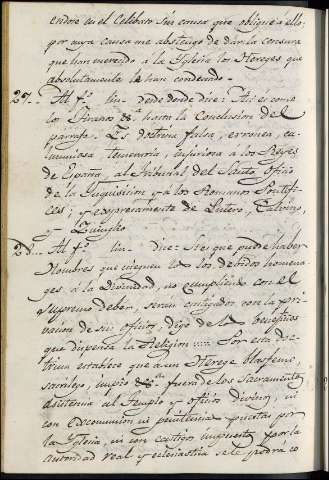 endose en el Celibato sin causa que obligue à ello;
por cuya causa me abstengo de dár la censura
que han merecido à la Iglesia los Hereges que
absolutamente le han condenado.
27.. Al f.º lin. desde donde dice: Asi es como
los Tiranos &.ª hasta la conclusion del
párrafo. Es doctrina falsa, erronea, ca-
lumniosa, temeraria, injuriosa à los Reyes
de España, al Tribunal del Santo Oficio
de la Inquisicion, y à los Romanos Pontifi-
ces; y expresamente de Lutero, Calvino,
y Zuinglio.
28... Al f.º lin. dice: Si es que puede haber
Hombres que nieguen los debidos homena-
ges à la Divinidad, no cumpliendo con el
supremo deber, seran castigados con la pri-
vacion de sus oficios, digo de los beneficios
que dispensa la Religion ... Por esta doc-
trina establece que à un Herege blasfemo,
sacrilego, impio &.ª fuera de los Sacramentos
asistencia al Templo y oficios divinos, ni
con Excomunion ni penitencia puestas por
la Iglesia, ni con castigos impuestos por la
autoridad real y eclesiastica se le podrá co